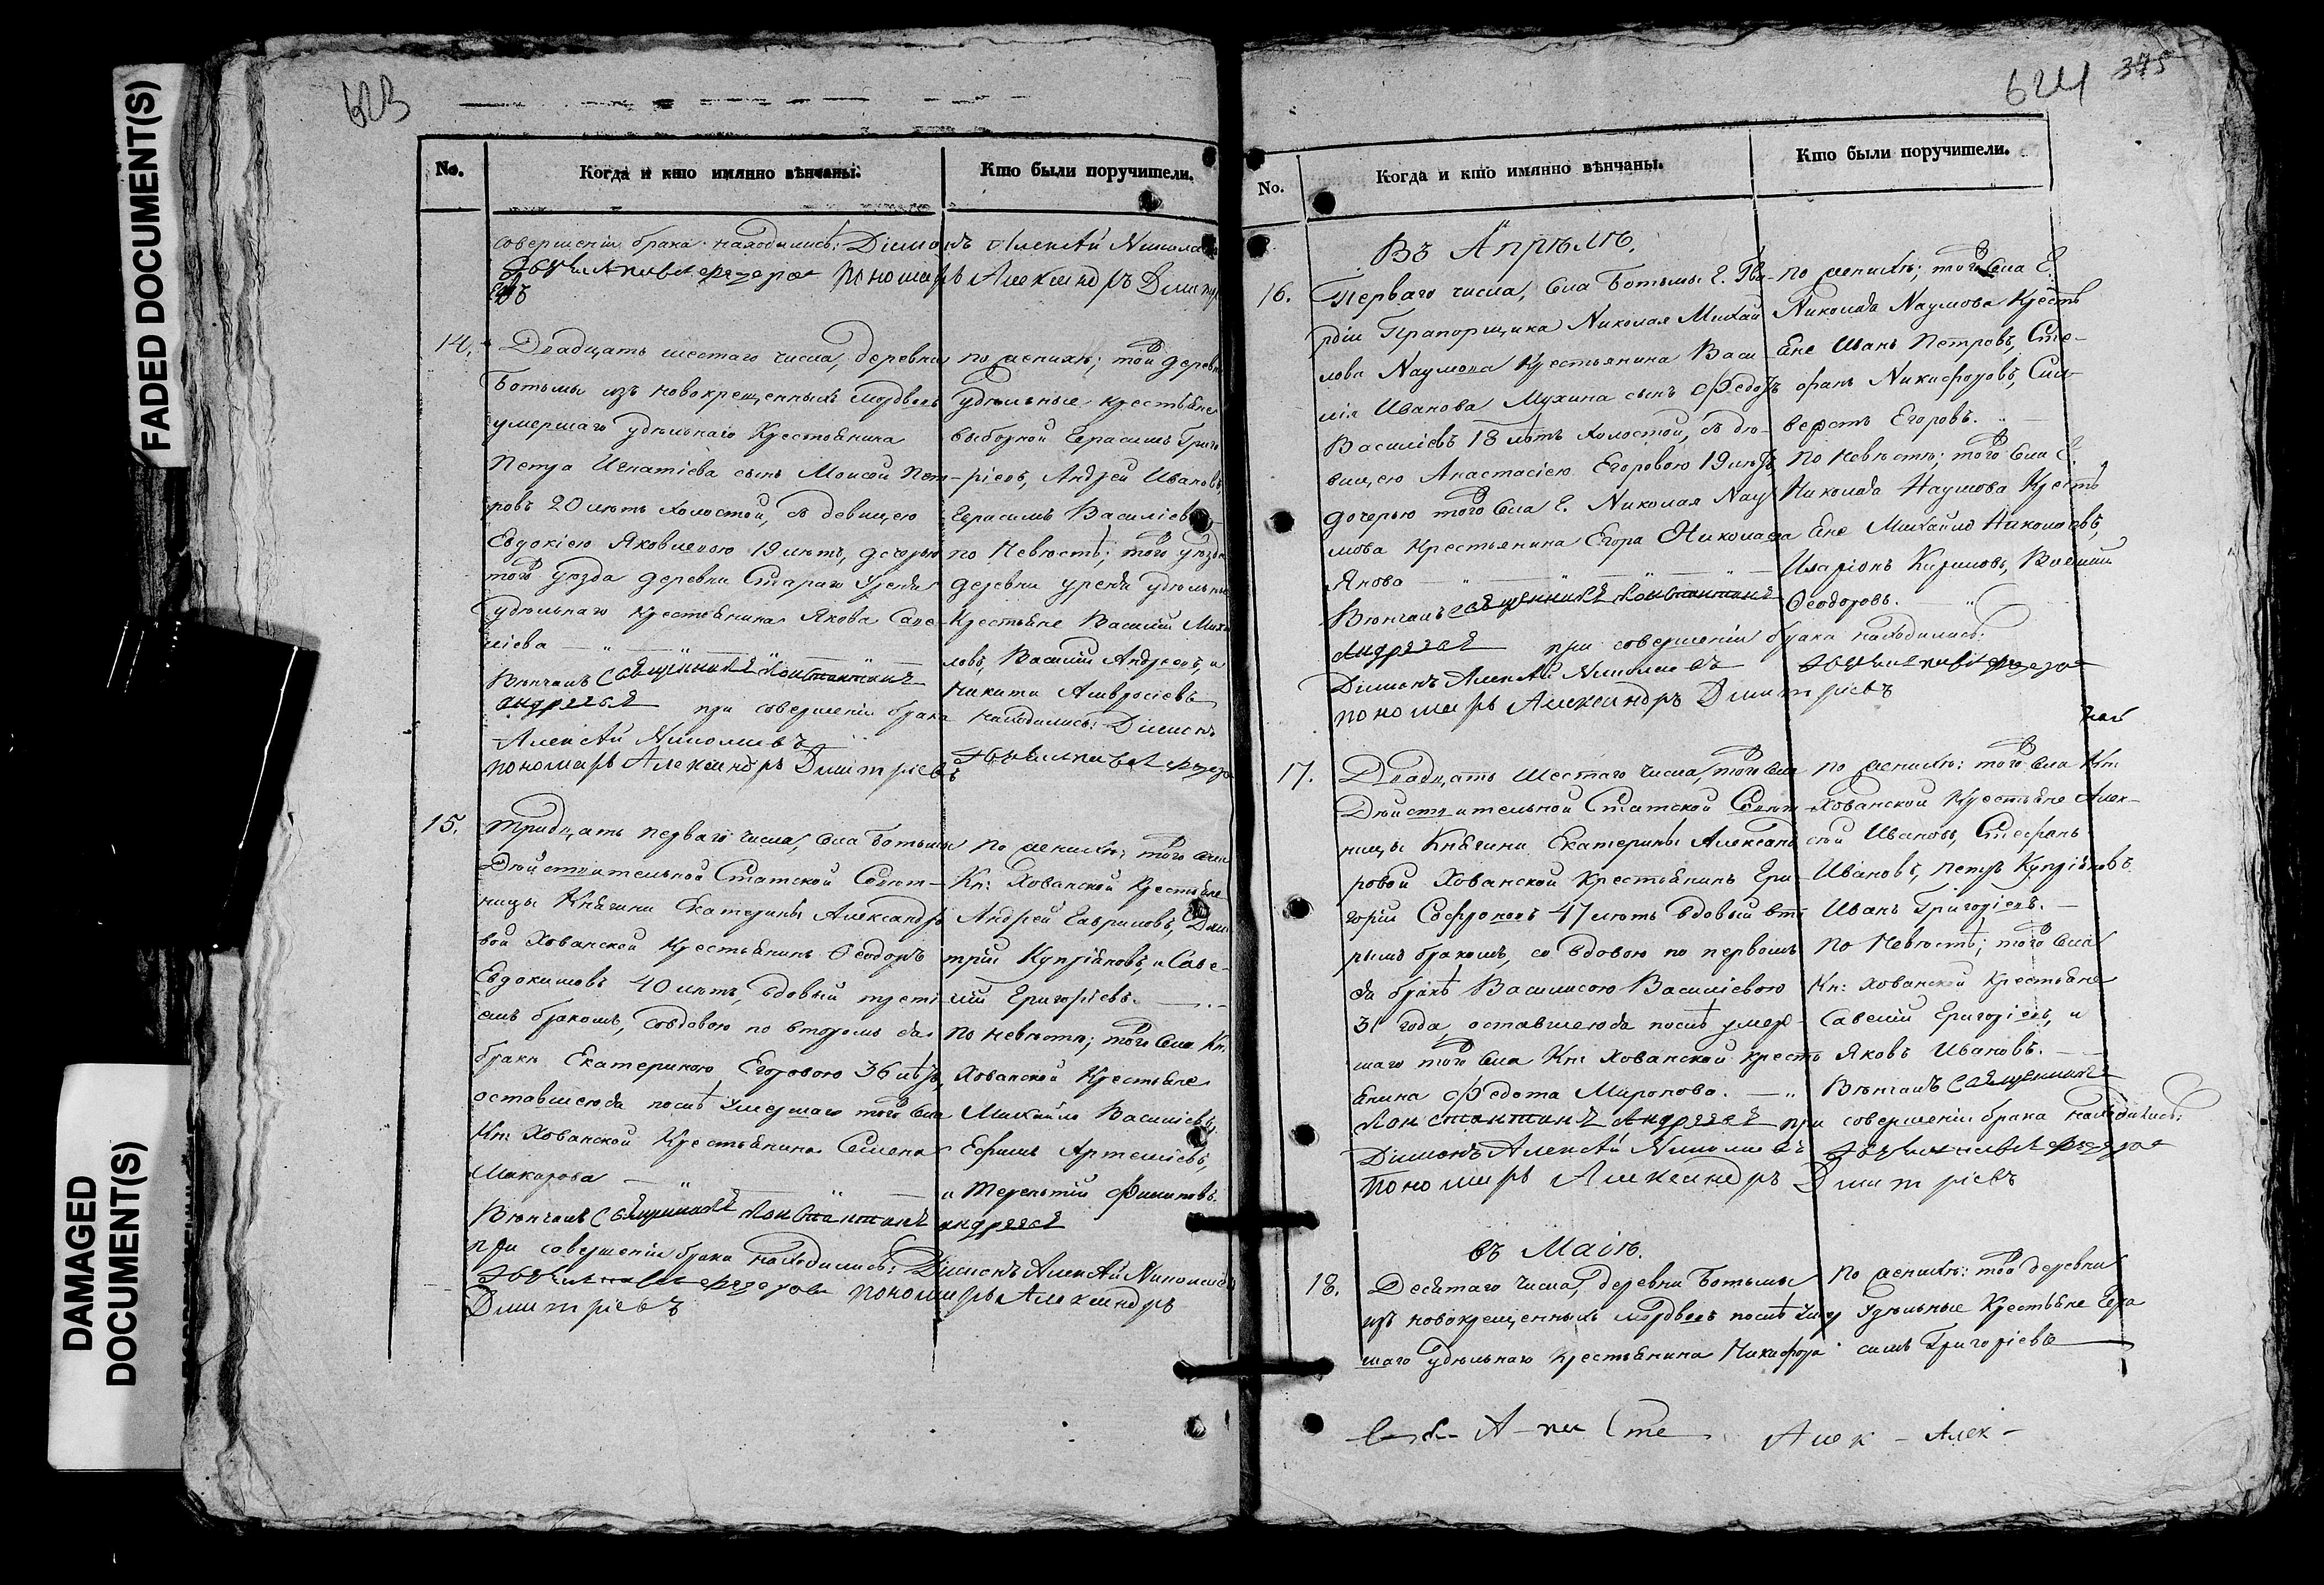 FADED DOCUMENT(S)
DAMAGED
DOCUMENT(S)
623
No.
Когда и кто имянно вѣнчаны.
Кто были поручители.
совершенiи брака находились: Дiаконъ Алексѣй Никола
пономарь Александръ Дмитрi
евъ
14.
Двадцать шестаго числа, деревни
Ботьмы изъ новокрещенныхъ мордвовъ
умершаго удѣльнаго Крестьянина
Петра Игнатiева сынъ Моисей Пет-
ровъ 20 лѣтъ холостой, съ девицею
Евдокiею Яковлевою 19 лѣтъ, дочерью
того уѣзда деревни Стараго Уреня
удѣльнаго крестьянина Якова Саве
лiева
Вѣнчалъ Священникъ Константинъ
Андреевъ при совершенiи брака находились: Дiаконъ
Алексѣй Николаевъ
пономарь Александръ Дмитрiевъ
по женихѣ; той дерев
удѣльные крестьяне
выборной Герасимъ Григо
рiевъ, Андрей Ивановъ,
Герасимъ Василiевъ
по Невѣстѣ; того уѣзда
деревни уреня удѣльны
Крестьяне Василiй Миха
ловъ, Василiй Андреевъ, и
Никита Амвросiевъ
15.
Тридцать перваго числа, села Ботьмы
Дѣйствительной Статской Совѣт-
ницы Княгини Екатерины Александро
вой Хованской Крестьянинъ Ѳеодоръ
Евдокимовъ 40 лѣтъ, вдовый треть
имъ бракомъ, со вдовою по второмъ ея
бракѣ Екатериною Егоровою 36 лѣтъ,
оставшеюся послѣ умершаго того села
Кн: Хованской Крестьянина Семена
Макарова
Вѣнчалъ Священникъ Константинъ Андреевъ
при совершенiи брака находились: Дiаконъ Алексѣй Николаевъ
пономарь Александръ
Дмитрiевъ
по женихѣ; того села
Кн: Хованской Крестьяне
Андрей Гавриловъ, Дми
трiй Купрiяновъ, и Саве-
лiй Григорiевъ.
по невѣстѣ; того села Кн:
Хованской Крестьяне
Михайло Василiевъ,
Ефимъ Артемiевъ,
и Терентiй Филиповъ.
624
375
No.
Когда и кто имянно вѣнчаны.
Кто были поручители.
Въ Апрѣлѣ.
16.
Перваго числа, села Ботьмы Г. Гва-
рдiи Прапорщика Николая Михай
лова Наумова Крестьянина Васи-
лiя Иванова Мухина сынъ Федоръ
Василiевъ 18 лѣтъ холостой, съ дѣ-
вицею Анастасiею Егоровою 19 лѣтъ,
дочерью того села Г. Николая Нау
мова Крестьянина Егора Николаева
Якова
Вѣнчалъ Священникъ Константинъ
Андреевъ при совершенiи брака находились:
Дiаконъ Алексѣй Николаевъ
пономарь Александръ Дмитрiевъ
по женихѣ; того села Г.
Николая Наумова Кресть
яне Иванъ Петровъ, Сте-
фанъ Никифоровъ, Сил-
верстъ Егоровъ.
По Невѣстѣ; того села Г.
Николая Наумова Кресть
яне Михайло Николаевъ,
Иларiонъ Кириловъ, Василiй
Ѳеодоровъ.
17.
Двадцать шестаго числа, того села
Дѣйствительной Статской Совѣт
ницы Княгини Екатерины Александ
ровой Хованской Крестьянинъ Гри-
горiй Софроновъ 47 лѣтъ вдовый вто
рымъ бракомъ, со вдовою по первомъ
ея бракѣ Василисою Василiевою
31 года, оставшеюся послѣ умер-
шаго того села Кн: Хованской кресть
янина Федота Миронова.
Вѣнчалъ Священникъ
Константинъ Андреевъ при совершенiи брака находились:
Дiаконъ Алексѣй Николаевъ
Пономарь Александръ Дмитрiевъ
по женихѣ: того села Кн:
Хованской Крестьяне Алек-
сѣй Ивановъ, Стефанъ
Ивановъ, Петръ Купрiяновъ
Иванъ Григорiевъ.
По Невѣстѣ; того села
Кн: Хованской Крестьяне
Савелiй Григорiевъ, и
Яковъ Ивановъ.
въ Маiѣ.
18.
Десятаго числа, деревни Ботьмы
изъ новокрещенныхъ мордвовъ послѣ умер
шаго удѣльнаго крестьянина Никифора
По женихѣ: той деревни
Удѣльные Крестьяне Гера
симъ Григорiевъ
Алек - Алек -